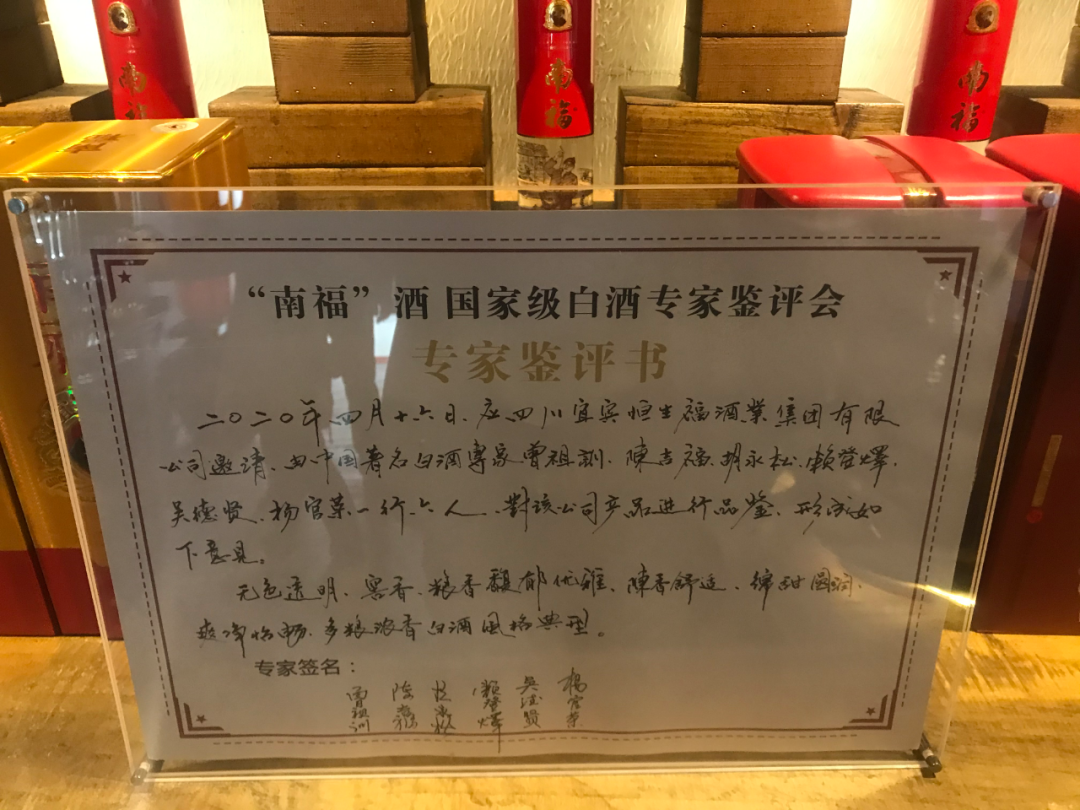 南福
南福
南福
“南福”酒 国家级白酒专家鉴评会
专家鉴评书
二〇二〇年四月十六日、应四川宜宾恒生福酒業集团有限
公司邀请、由中国著名白酒專家曾祖訓、陳吉福、胡永松、赖登燡、
吴德贤、杨官荣一行六人、對该公司产品进行品鉴、形成如
下意見。
无色透明、窖香、粮香馥郁优雅、陳香舒适、绵甜圆润、
爽净怡畅、多粮浓香白酒風格典型。
专家签名：
曾祖训 陈吉福 胡永松 赖登燡 吴德贤 杨官荣